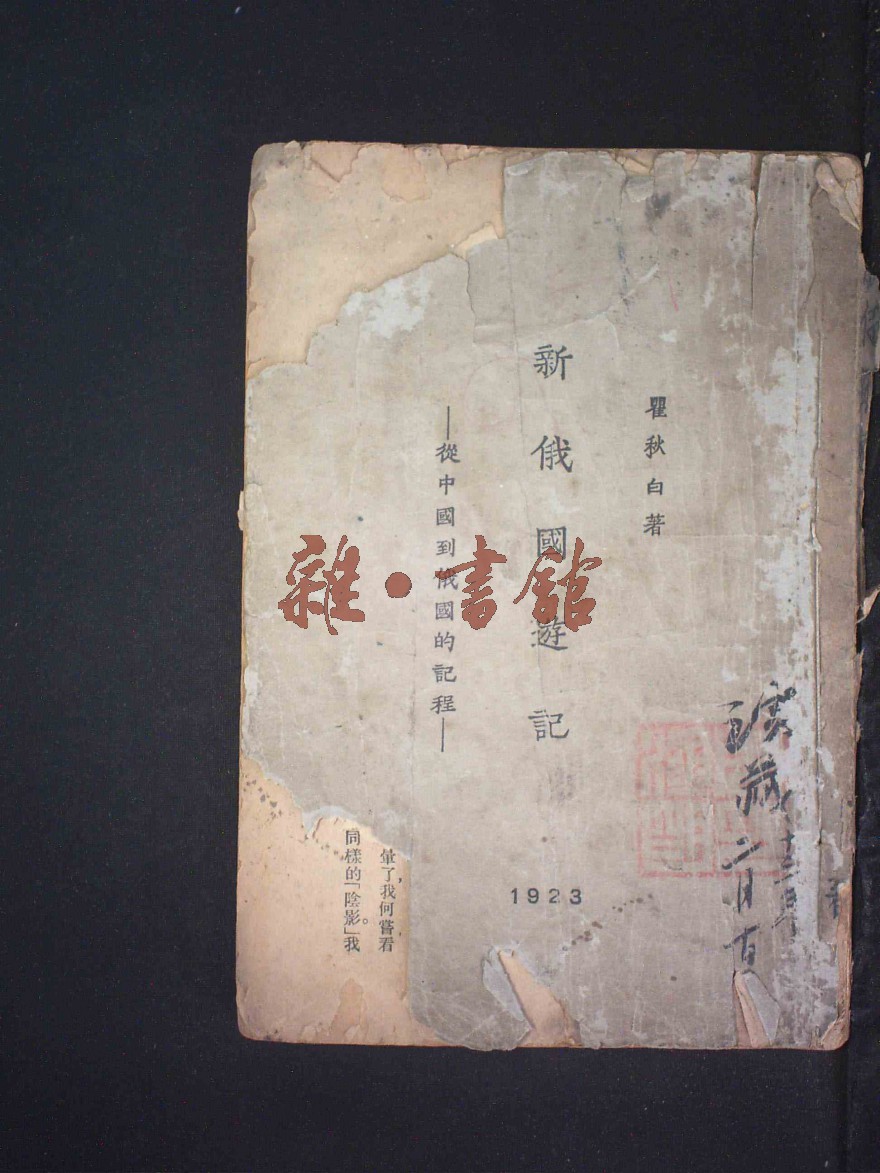 瞿秋白著
新俄國遊記
—從中國到俄國的記程—
1923
暈了，我何嘗看
同樣的「陰影」。我
雜·書館
藏
二月